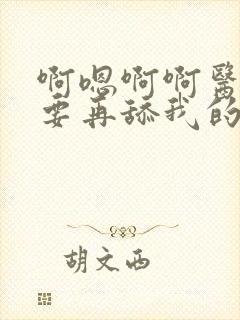 啊嗯啊啊醫
要再舔我的
胡文西